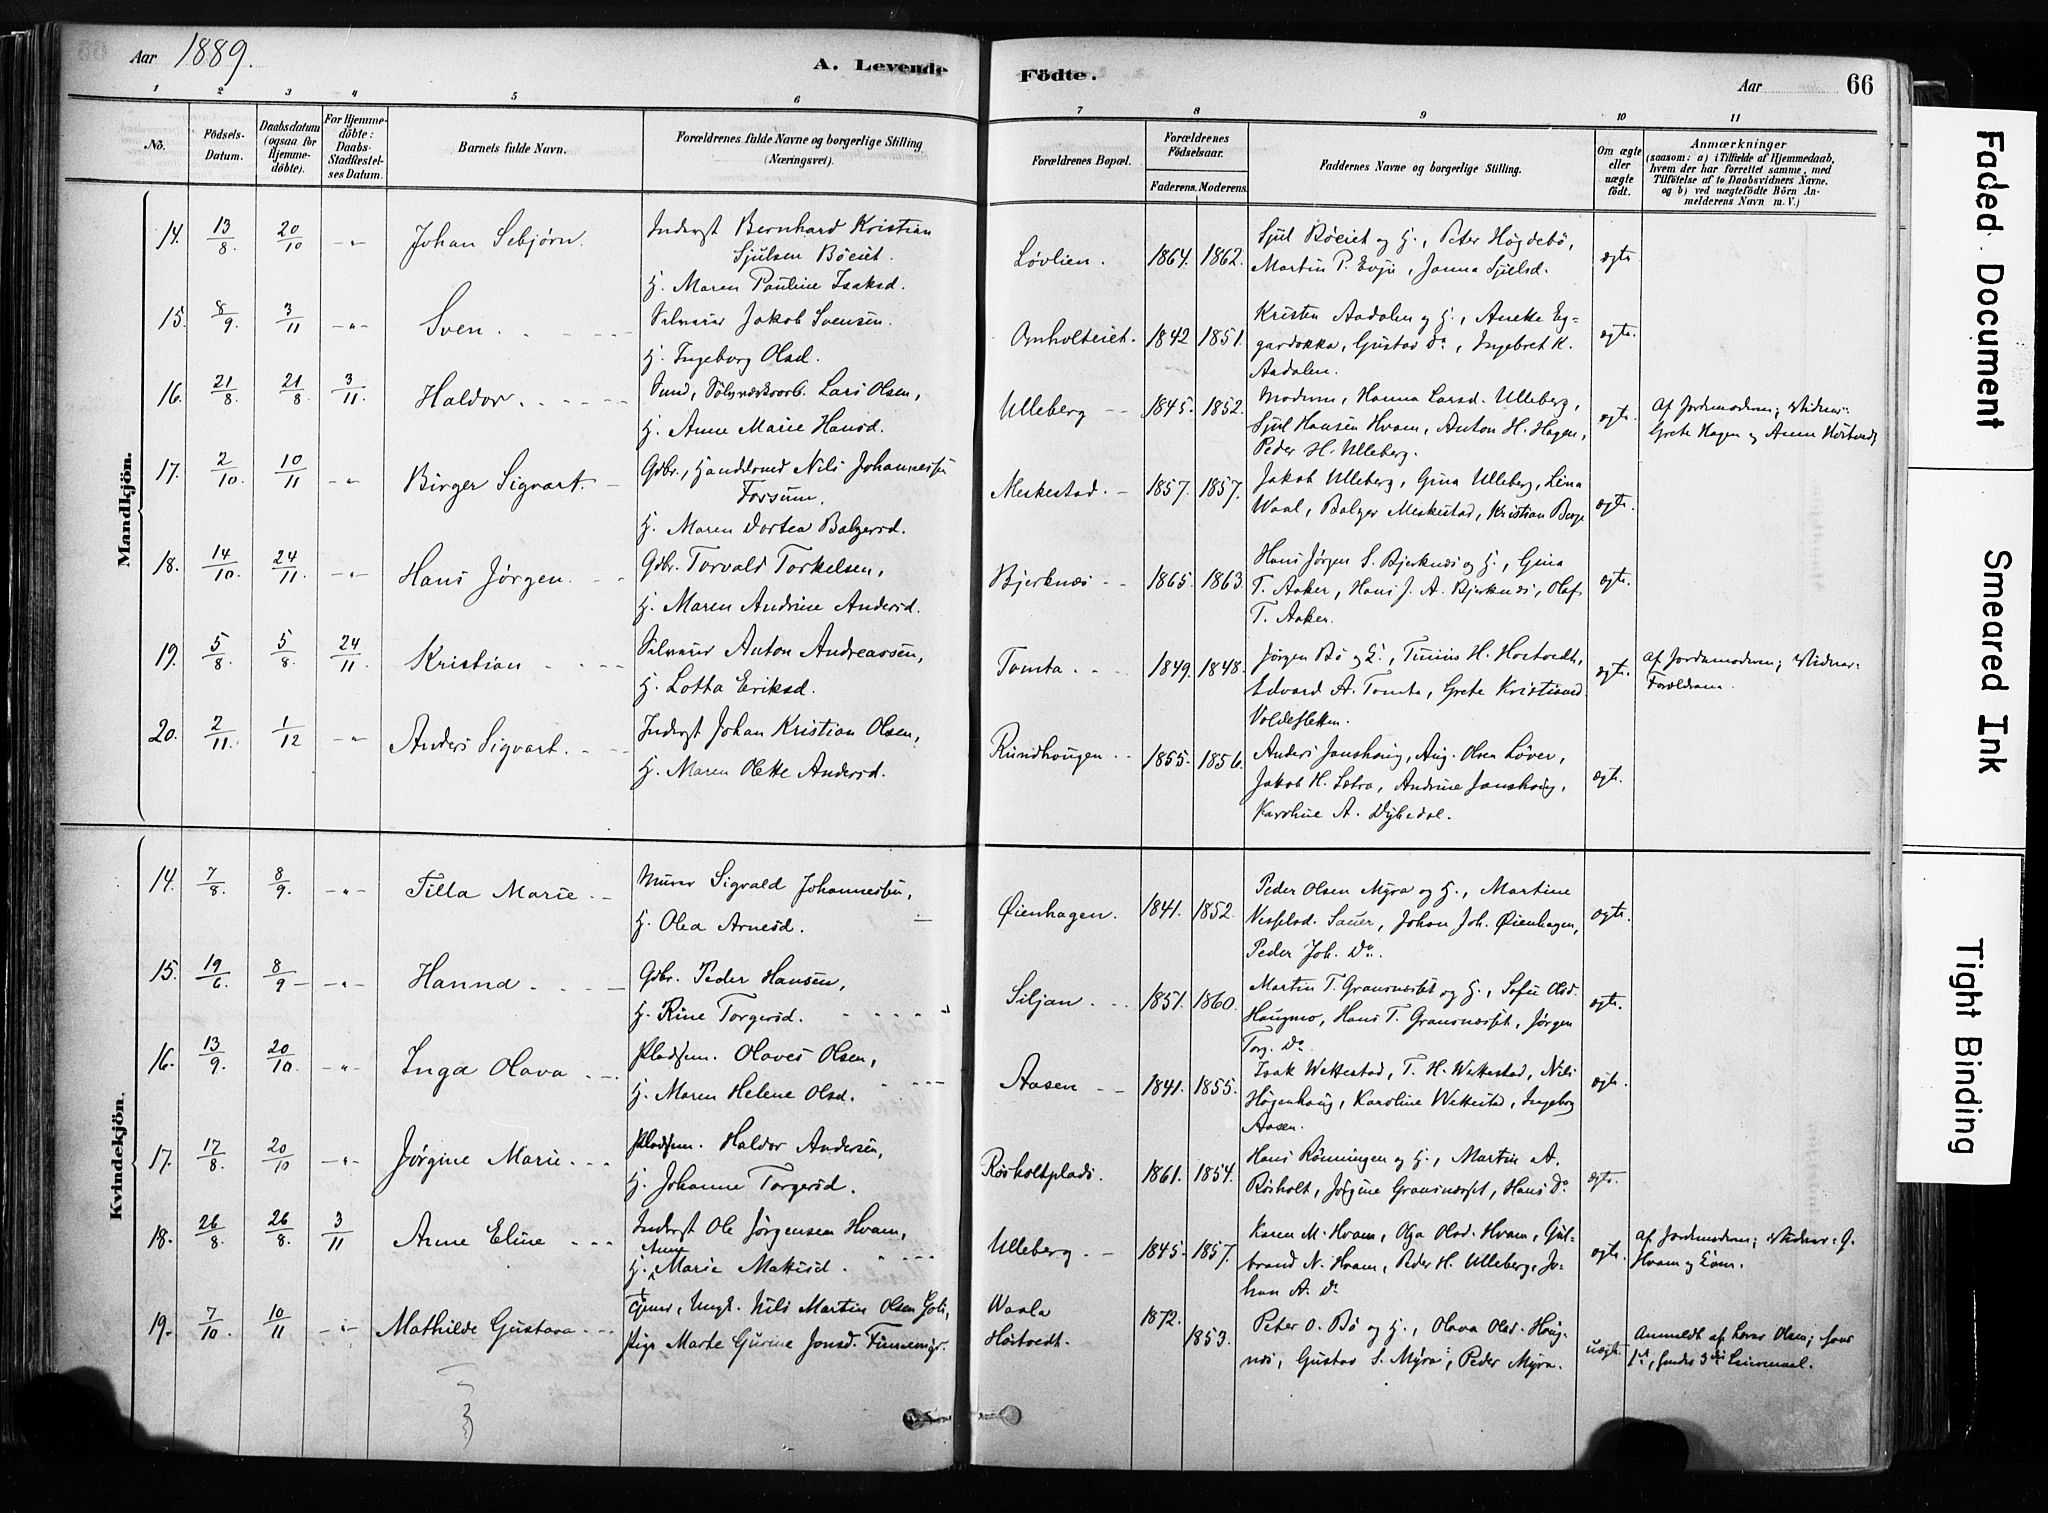 Aar 1889.
A. Levende Födte.
Aar 66
1 2 3 4 5 6 7 8 9 10 11
No.
Födsels-
Datum.
Daabsdatum
(ogsaa for
Hjemme-
döbte).
For Hjemme-
döbte:
Daabs-
Stadfæstel-
ses Datum.
Barnets fulde Navn.
Forældrenes fulde Navne og borgerlige Stilling
(Næringsvei).
Forældrenes Bopæl.
Forældrenes
Födselsaar.
Faderens. Moderens.
Faddernes Navne og borgerlige Stilling.
Om ægte
eller
uægte
födt.
Anmærkninger
(saasom: a) i Tilfælde af Hjemmedaab,
hvem der har forrettet samme, med
Tilföielse af to Daabsvidners Navne.
og b) ved uægtefödte Börn An-
melderens Navn m. V.)
Mandkjön.
14. 13/8. 20/10 -"- Johan Sebjørn. Inderst Bernhard Kristian
Sjulsen Böeiet.
H. Maren Pauline Isaksd.
Løvlien. 1864. 1862. Sjul Böeiet og H., Peter Högdebö,
Martin P. Evju, Janna Sjulsd. ægte.
15. 8/9. 3/11 -"- Sven. Jakob Svensen.
H. Ingeborg Olsd.
Omholteiet. 1842 1851. Kristen Aadalen og H., Aneke Eg-
gardokka, Gustav Do, Ingebret K.
Aadalen. ægte.
16. 21/8. 21/8. 3/11. Haldor. Lars Olsen,
H. Anne Marie Hansd.
Ulleberg 1845. 1852. Moderen, Hanna Larsd. Ulleberg,
Sjul Hansen Hvam, Anton H. Hagen,
Peder H. Ulleberg. ægte. Af Jordemoderen; Vidner:
Grete Hagen og Anne Höitvedt
17. 2/10. 10/11 -"- Birger Sigvart. Gdbr., Handelsmd Nils Johannessen
Forsum.
H. Maren Dortea Balzersd.
Meskestad. 1857. 1857. Jakob Ulleberg, Gina Ulleberg, Lina
Waal, Balzer Meskestad, Kristian Berge ægte.
18. 14/10. 24/11. -"- Hans Jørgen. Gdbr. Torvald Torkelsen,
H. Maren Andrine Andersd.
Bjerknes 1865. 1863. Hans Jørgen S. Bjerknes og H., Gina
T. Aaker, Hans J. A. Bjerknes, Olaf
T. Aaker. ægte.
19. 5/8. 5/8. 24/11 Kristian Anton Andreassen,
H. Lotta Eriksd.
Tomta 1849. 1848. Jørgen Bö og H., Tinius H. Hostvedt,
Edvard A. Tomta, Grete Kristiansd
Voldesletten. ægte. Af Jordemoderen; Vidner:
Forældrene.
20. 2/11. 1/12 -"- Anders Sigvart. Inderst Johan Kristian Olsen,
H. Maren Olette Andersd.
Rundhougen 1855. 1856. Anders Janshoug, Aug. Olsen Löver,
Jakob H. Sætra, Andrine Janshoug,
Karoline A. Dybedal. ægte.
Kvindekjön.
14. 7/8. 8/9. -"- Tilla Marie Murer Sigvald Johannessen,
H. Olea Arnesd.
Øienhagen. 1841. 1852. Peder Olsen Myra og H., Martine
Sauer, Johan Joh. Øienhagen,
Peder Joh. Do. ægte.
15. 19/6. 8/9 -"- Hanna Gdbr. Peder Hansen,
H. Rine Torgersd.
Siljan 1857. 1860. Martin T. Gransnæsset og H., Sofie Olsd.
Haugmo, Hans T. Gransnæsset, Jörgen
Torg. Do. ægte.
16. 13/9. 20/10. -"- Inga Olava Pladsem. Olaves Olsen,
H. Maren Helene Olsd.
Aasen 1841. 1855. Isak Wettestad, T. H. Wettestad, Nils
Högenhaug, Karoline Wettestad, Ingeborg
Aasen. ægte.
17. 17/8. 20/10 -"- Jørgine Marie Pladsem. Haldor Andersen,
H. Johanne Torgersd.
Røsholtplads. 1861. 1854. Hans Rönningen og H., Martin A.
Røsholt, Jørgine Gransnæsset, Hans Do ægte.
18. 26/8. 26/8. 3/11 Anne Eline Inderst Ole Jørgensen Hvam,
H. Anne Marie Mattisd.
Ulleberg 1845. 1857. Karen M. Hvam, Olga Olsd. Hvam, Gul-
brand N. Hvam, Peder H. Ulleberg, Jo-
han A. Do ægte. Af Jordemoderen; Vidner: G.
Hvam og Kone.
19. 7/10. 10/11 -"- Mathilde Gustava Ungk. Nils Martin Olsen Goli,
Pige Marte Gurine Jonsd. Finnemyr.
Waala
Höitvedt. 1872. 1853. Peter O. Bö og H., Olava Olsd. Houg-
nes, Gustav S. Myra, Peder Myra. uægte. Anmeldt af Olsen; fars
1ste, hendes 3die Leiermaal.
Faded Document
Smeared Ink
Tight Binding